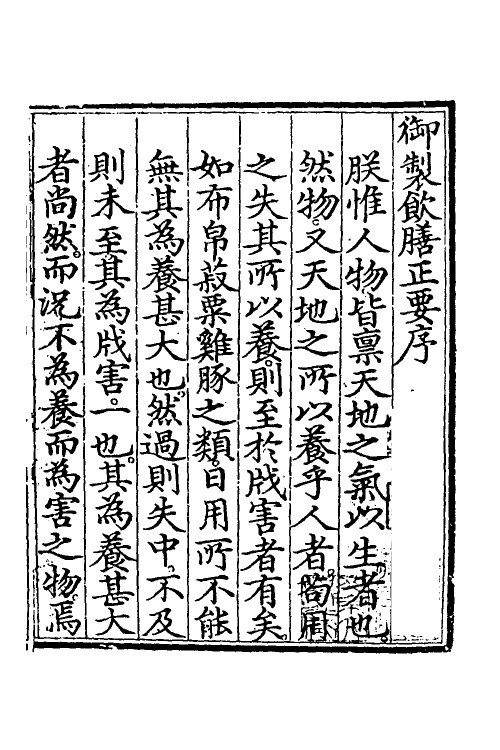 御製飲膳正要序
朕惟人物皆禀天地之氣以生者也。
然物。又天地之所以養乎人者。茍用
之失其所以養。則至於戕害者有矣。
如布帛菽粟雞豚之類。日用所不能
無。其為養甚大也。然過則失中。不及
則未至。其為戕害。一也。其為養甚大
者尚然。而況不為養而為害之物。焉